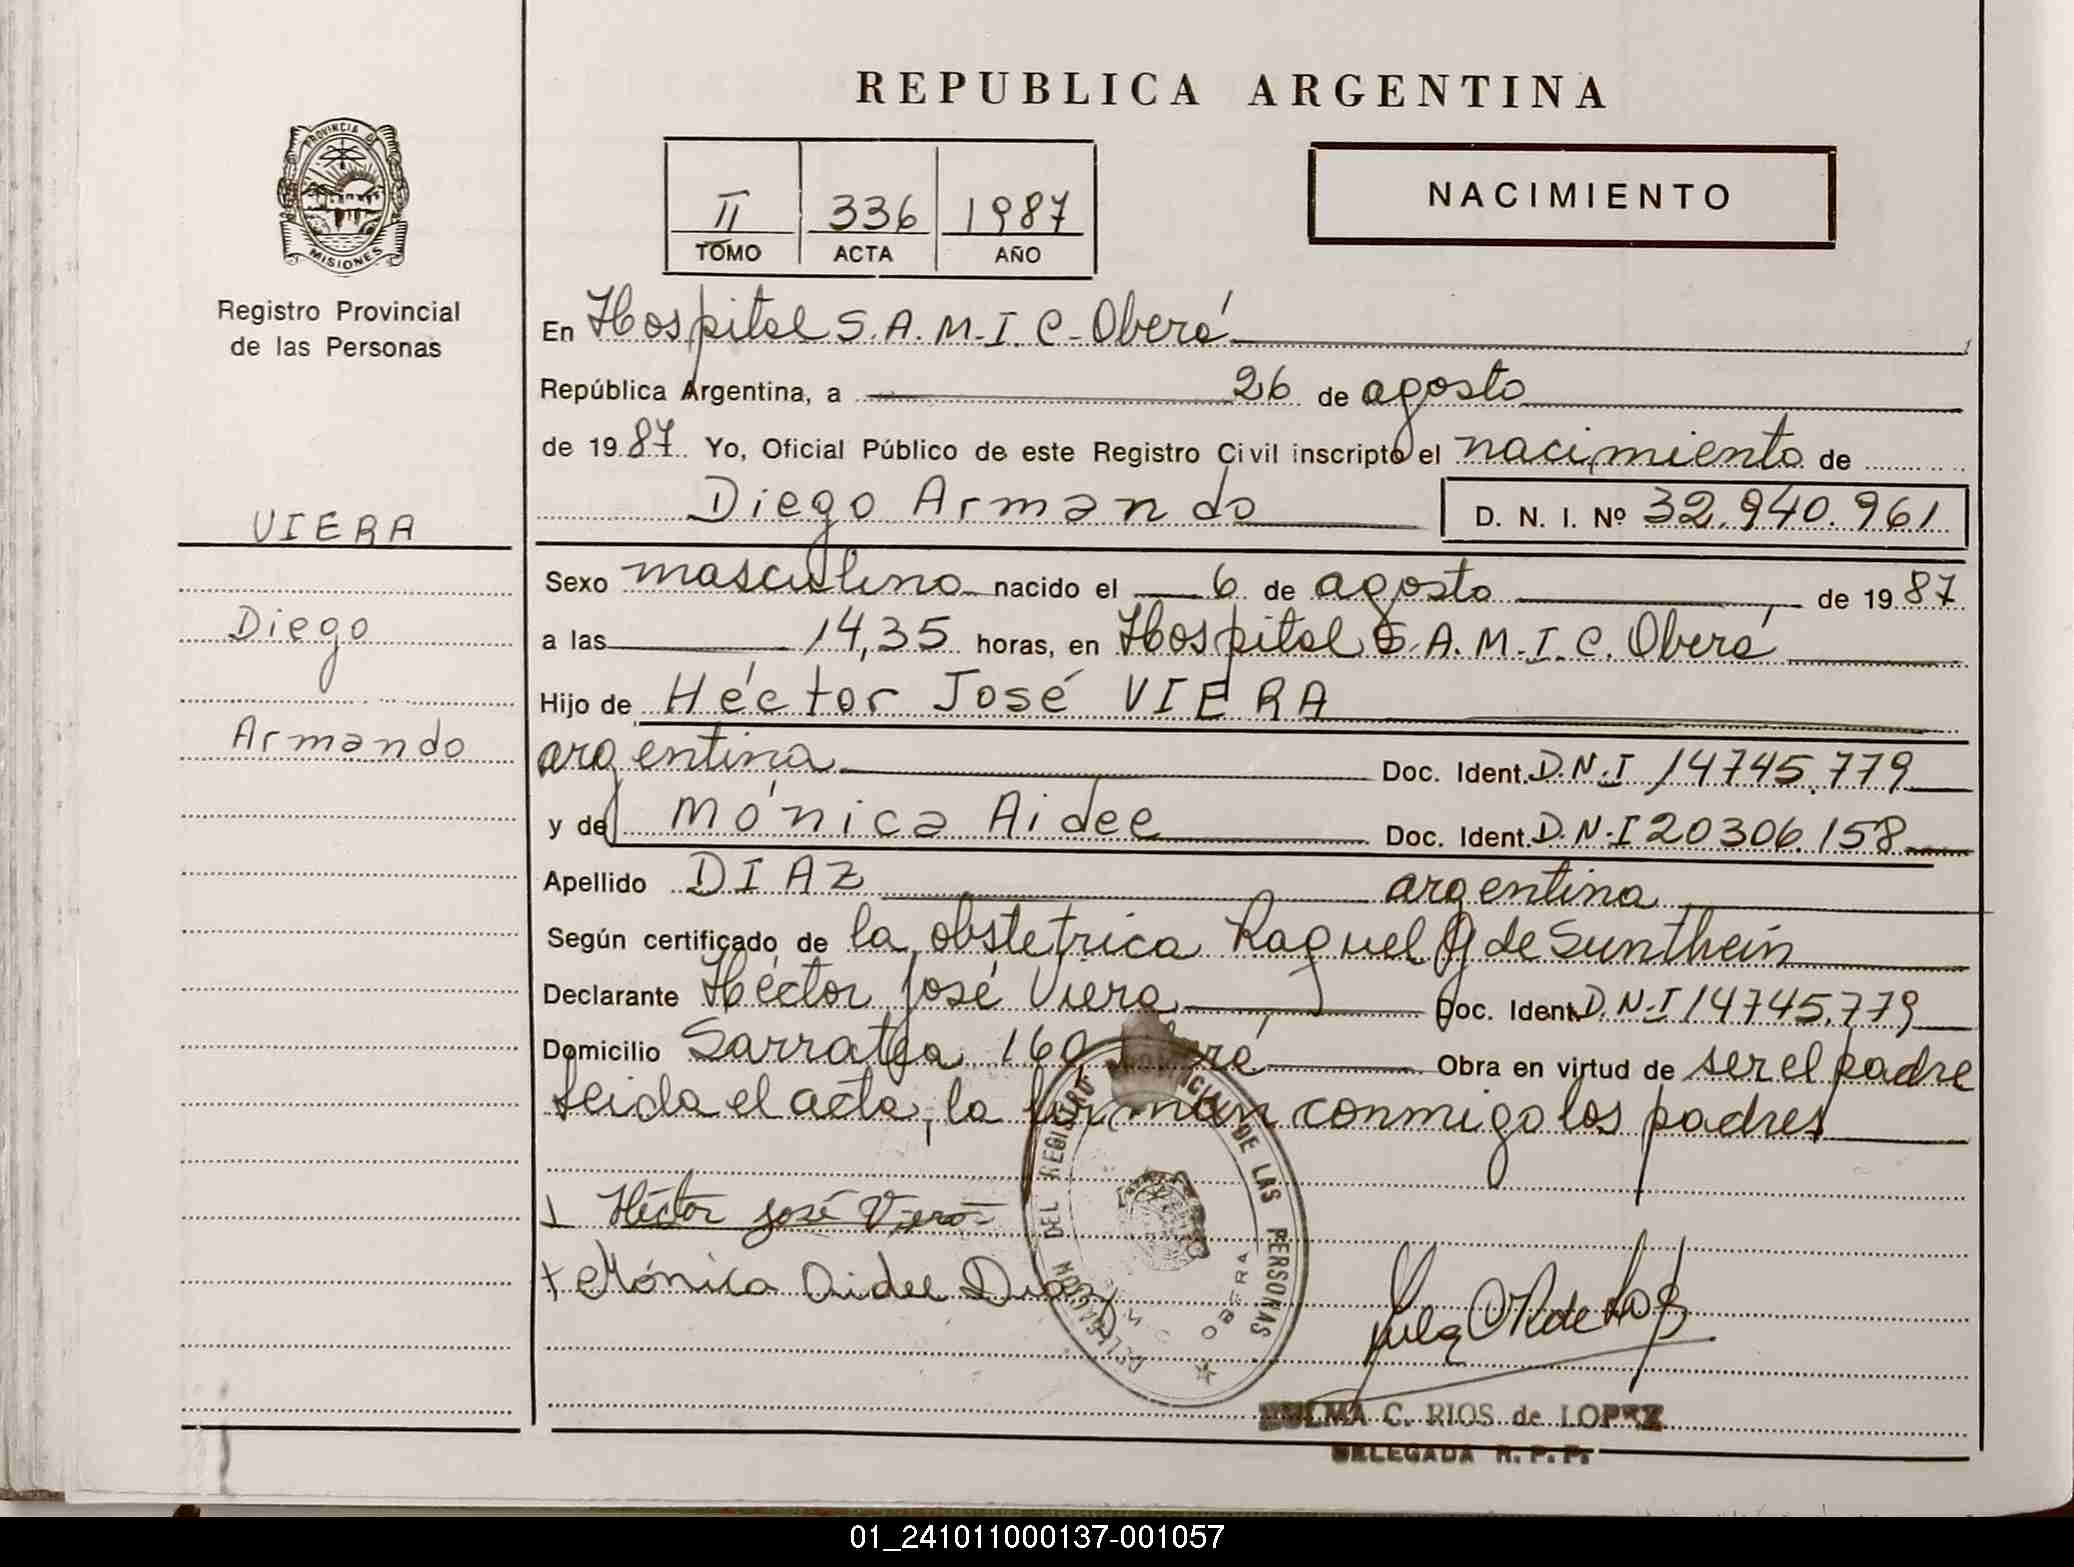 REPUBLICA ARGENTINA
PROVINCIA DE
MISIONES
Registro Provincial
de las Personas
II 336 1987
TOMO ACTA AÑO
NACIMIENTO
En Hospital S.A.M.I.C-Oberá
República Argentina, a 26 de agosto
de 1987 Yo, Oficial Público de este Registro Civil inscripto el nacimiento de
Diego Armando D. N. I. Nº 32.940.961
VIERA
Diego
Armando
Sexo masculino nacido el 6 de agosto de 1987
a las 14,35 horas, en Hospital S.A.M.I.C. Oberá
Hijo de Héctor José VIERA
argentina Doc. Ident. D.N.I 14745.779
y de Mónica Aidee Doc. Ident. D.N.I 20306.158
Apellido DIAZ argentina
Según certificado de la obstetrica Raquel G de Sunthein
Declarante Héctor José Viera Doc. Ident. D.N.I 14745.779
Domicilio Sarratea 160 Oberá Obra en virtud de ser el padre
Leida el acta, la firman conmigo los padres
Héctor José Viera
x Mónica Aidee Diaz
DELEGACION DEL REGISTRO PROVINCIAL DE LAS PERSONAS
OBERA
ZULMA C. RIOS de LOPEZ
DELEGADA R.P.P.
01_241011000137-001057